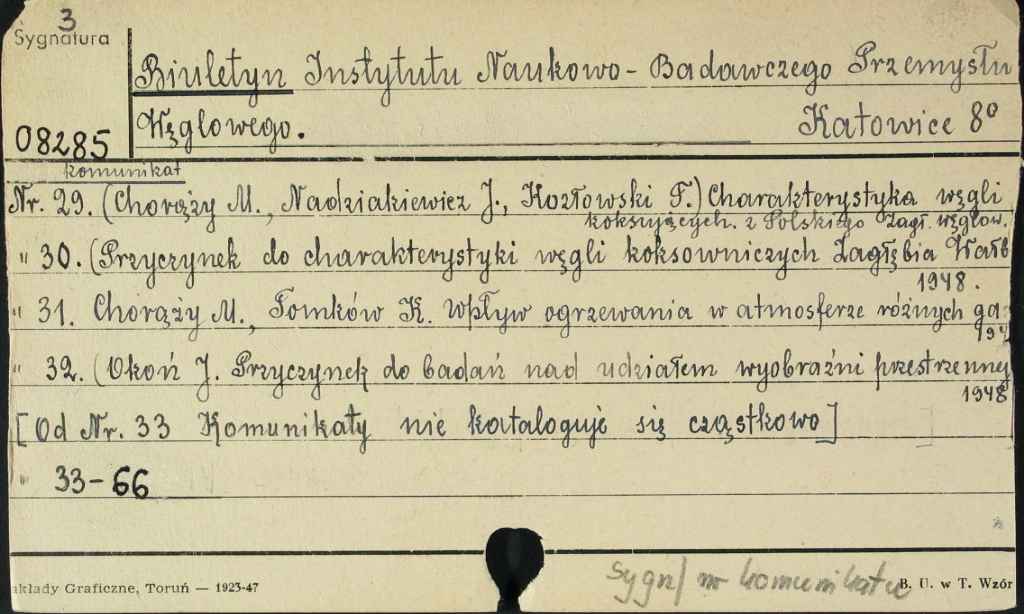 3
Sygnatura
Biuletyn Instytutu Naukowo-Badawczego Przemysłu
Węglowego. Katowice 8°
08285
komunikat
Nr. 29. (Chorąży M., Nadziakiewicz J., Kozłowski F.) Charakterystyka węgli
koksujących. z Polskiego Zagł. węglow.
" 30. (Przyczynek do charakterystyki węgli koksowniczych Zagłębia Wałb
1948.
" 31. Chorąży M., Tomków K. Wpływ ogrzewania w atmosferze różnych ga-
" 32. (Okoń J. Przyczynek do badań nad udziałem wyobraźni przestrzennej
1948
[Od Nr. 33 Komunikaty nie kataloguje się cząstkowo]
" 33-66
sygn/ nr komunikatu
akłady Graficzne, Toruń — 1923-47 B. U. w T. Wzór